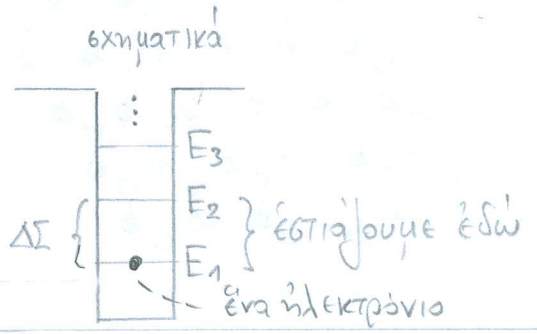 σχηματικά
⋮
E₃
E₂
ΔΣ { } ἑστιάζουμε ἐδῶ
E₁
ἕνα ἠλεκτρόνιο